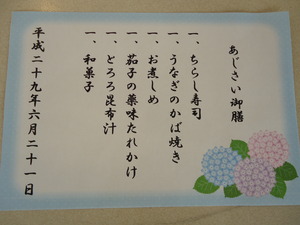 あじさい御膳
一、ちらし寿司
一、うなぎのかば焼き
一、お煮しめ
一、茄子の薬味たれかけ
一、とろろ昆布汁
一、和菓子
平成二十九年六月二十一日